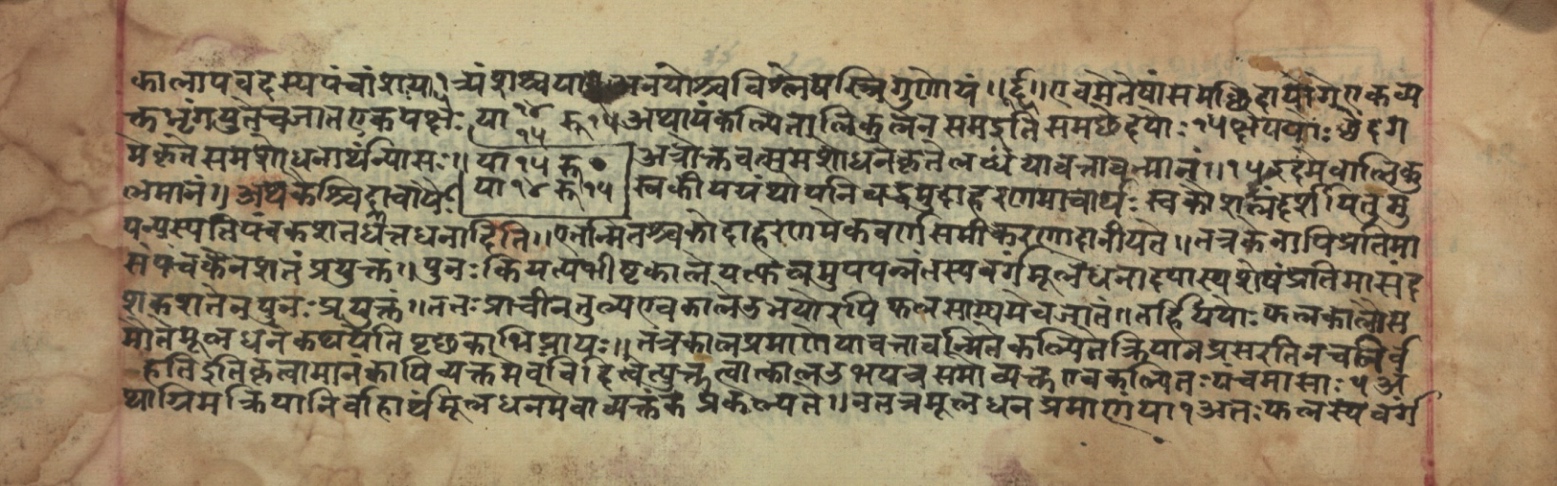 कालापवदस्यपंचांशया१ त्र्यंशश्चया अनयोश्चविश्लेषस्त्रिगुणोयं॥ एवमेतेषांसमच्छिदायोगेएकव्य
क्तभृंगयुतेचजातएकपक्षेः या १४/१५ रू१५अथायंकल्पितालिकुलेनसमइतिसमछेदयोः १५क्षेपकाः छेदग
मेकृतेसमशोधनार्थंन्यासः॥ या १५ रू ० अत्रोक्तवत्समशोधनेकृतेलब्धं यावत्तावन्मानं॥१५इदमेवालिकु
लमानं॥ अथकश्चिदावार्यः या १४ रू १५ स्वकीयग्रंथोपनिबद्धमुदाहरणमाचार्यः स्वकौशलंदर्शयितुमु
पन्यस्यतिपंचकशतदत्तधनादिति॥ एतन्मितश्चकोदाहरणमेकवर्णसमीकरणादानीयते॥ तत्रकेनापिप्रतिमा
संपंचकेनशतंप्रयुक्तं॥ पुनः कियत्यभीष्टकालेयत्फलमुपपन्नंतस्यवर्गंमूलधनादपास्यशेषंप्रतिमासंद
शकशतेनपुनः प्रयुक्तं॥ ततः प्राचीनतुल्यएवकालेउभयोरपि फलसाम्यमेवजातं॥ तर्हितयोः फलकालौस
मौतेमूलधनेकथयेति पृछकाभिप्रायः॥ तत्रकालप्रमाणेयावत्तावन्मितेकल्पितेक्रियानप्रसरतिनचलिर्व
हतिइतिकृत्वामानंकापिव्यक्तमेव वालउभयत्रसमाव्यक्तएवकल्पितः पंचमासाः ५ अ
थाग्रिमक्रियानिर्वाहार्थंमूलधनमेवाव्यक्तकंप्रकल्प्यते॥ ततत्रमूलधनप्रमाणंया१अतः फलस्यवर्ग